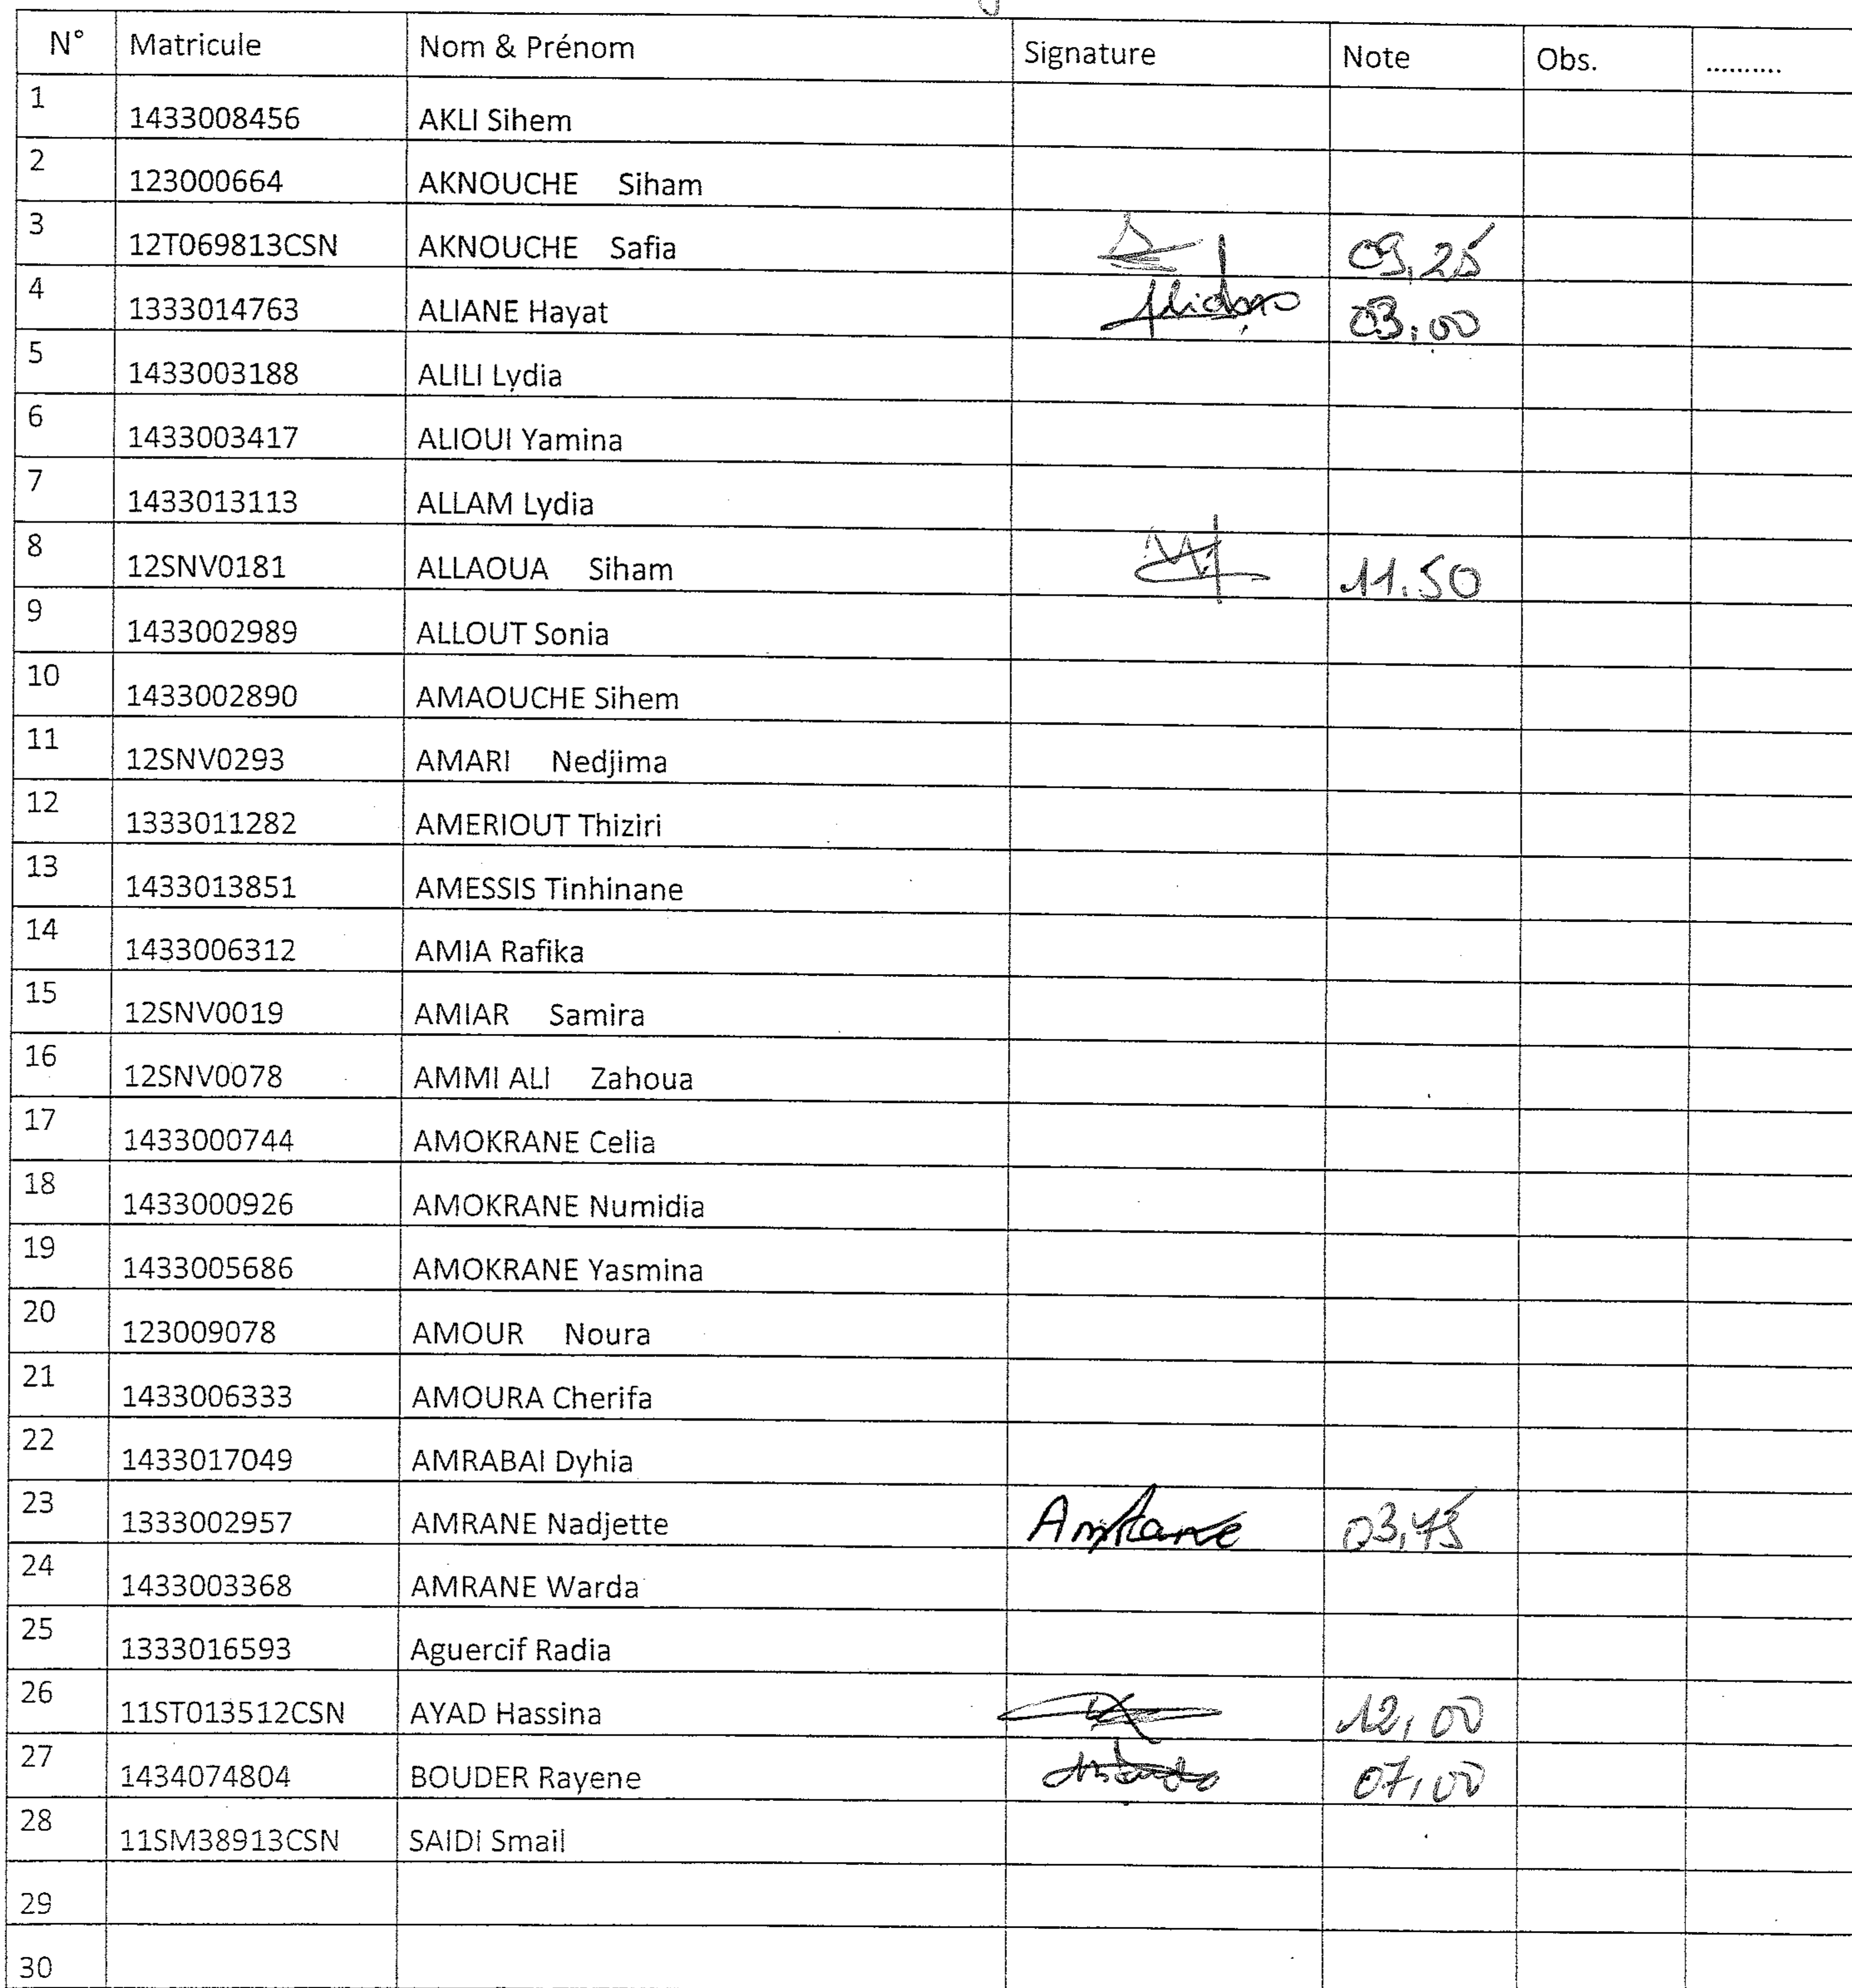 N° Matricule Nom & Prénom Signature Note Obs. ..........
1 1433008456 AKLI Sihem
2 123000664 AKNOUCHE Siham
3 12T069813CSN AKNOUCHE Safia 09,25
4 1333014763 ALIANE Hayat 03,00
5 1433003188 ALILI Lydia
6 1433003417 ALIOUI Yamina
7 1433013113 ALLAM Lydia
8 12SNV0181 ALLAOUA Siham 11.50
9 1433002989 ALLOUT Sonia
10 1433002890 AMAOUCHE Sihem
11 12SNV0293 AMARI Nedjima
12 1333011282 AMERIOUT Thiziri
13 1433013851 AMESSIS Tinhinane
14 1433006312 AMIA Rafika
15 12SNV0019 AMIAR Samira
16 12SNV0078 AMMI ALI Zahoua
17 1433000744 AMOKRANE Celia
18 1433000926 AMOKRANE Numidia
19 1433005686 AMOKRANE Yasmina
20 123009078 AMOUR Noura
21 1433006333 AMOURA Cherifa
22 1433017049 AMRABAI Dyhia
23 1333002957 AMRANE Nadjette Amrane 03,75
24 1433003368 AMRANE Warda
25 1333016593 Aguercif Radia
26 11ST013512CSN AYAD Hassina 12,00
27 1434074804 BOUDER Rayene 07,00
28 11SM38913CSN SAIDI Smail
29
30